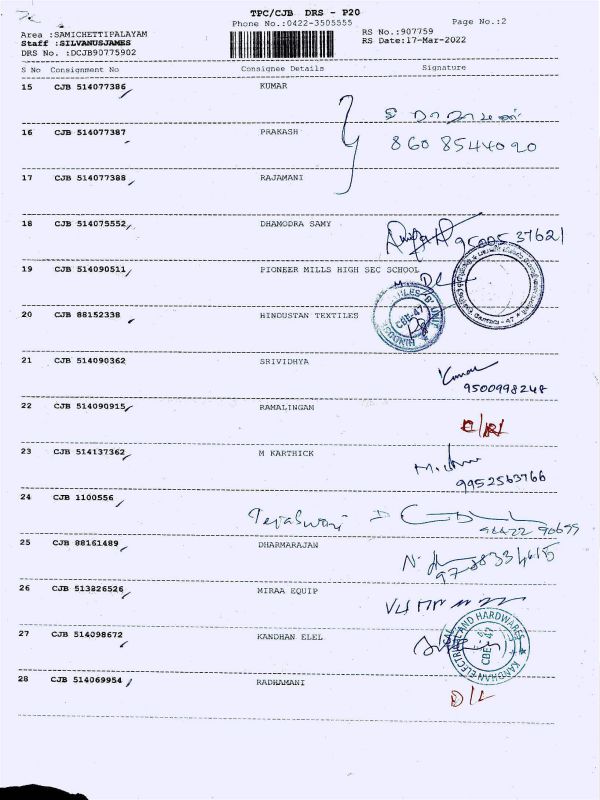 TPC/CJB DRS - P20
Phone No.:0422-3505555
Page No.:2
Area :SAMICHETTIPALAYAM
RS No.:907759
Staff :SILVANUSJAMES
RS Date:17-Mar-2022
DRS No. :DCJB90775902
S No Consignment No Consignee Details Signature
15 CJB 514077386 KUMAR
16 CJB 514077387 PRAKASH
860 8544020
17 CJB 514077388 RAJAMANI
18 CJB 514075552 DHAMODRA SAMY
95005 37621
19 CJB 514090511 PIONEER MILLS HIGH SEC SCHOOL
20 CJB 88152338 HINDUSTAN TEXTILES
CBE-47
21 CJB 514090362 SRIVIDHYA
Kumar
9500998248
22 CJB 514090915 RAMALINGAM
23 CJB 514137362 M KARTHICK
9952563766
24 CJB 1100556
Tejaswini
94422 90699
25 CJB 88161489 DHARMARAJAN
26 CJB 513826526 MIRAA EQUIP
27 CJB 514098672 KANDHAN ELEL
KANDHAN ELECTRICAL AND HARDWARES
CBE-47
28 CJB 514069954 RADHAMANI
D/L